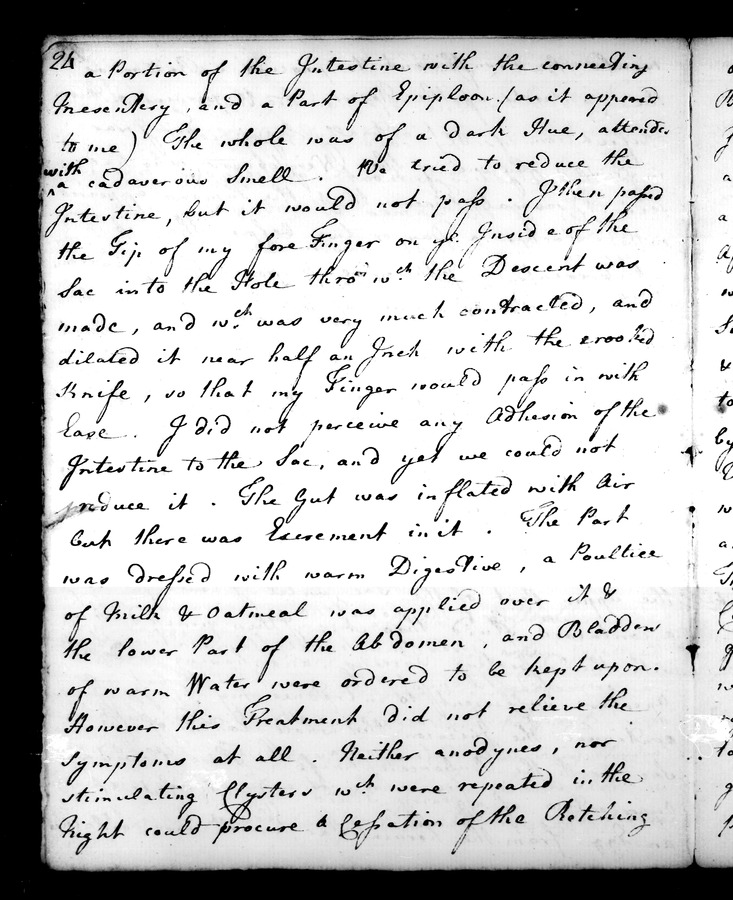 24
a Portion of the Intestine with the connecting
Mesentery, and a Part of Epiploon (as it appered
to me) The whole was of a dark Hue, attended
with
^a cadaverous Smell. We tried to reduce the
Intestine, but it would not pass. I then passed
the Tip of my fore Finger on ye Inside of the
Sac into the Hole thro' wch the Descent was
made, and wch was very much contracted, and
dilated it near half an Inch with the crooked
Knife, so that my Finger would pass in with
Ease. I did not perceive any Adhesion of the
Intestine to the Sac, and yet we could not
reduce it. The Gut was inflated with Air
but there was Excrement in it. The Part
was dressed with warm Digestive, a Poultice
of Milk & Oatmeal was applied over it &
the lower Part of the Abdomen, and Bladders
of warm Water were ordered to be kept upon.
However this Treatment did not relieve the
Symptoms at all. Neither anodynes, nor
stimulating Clysters wch were repeated in the
Night could procure a Cessation of the Retching